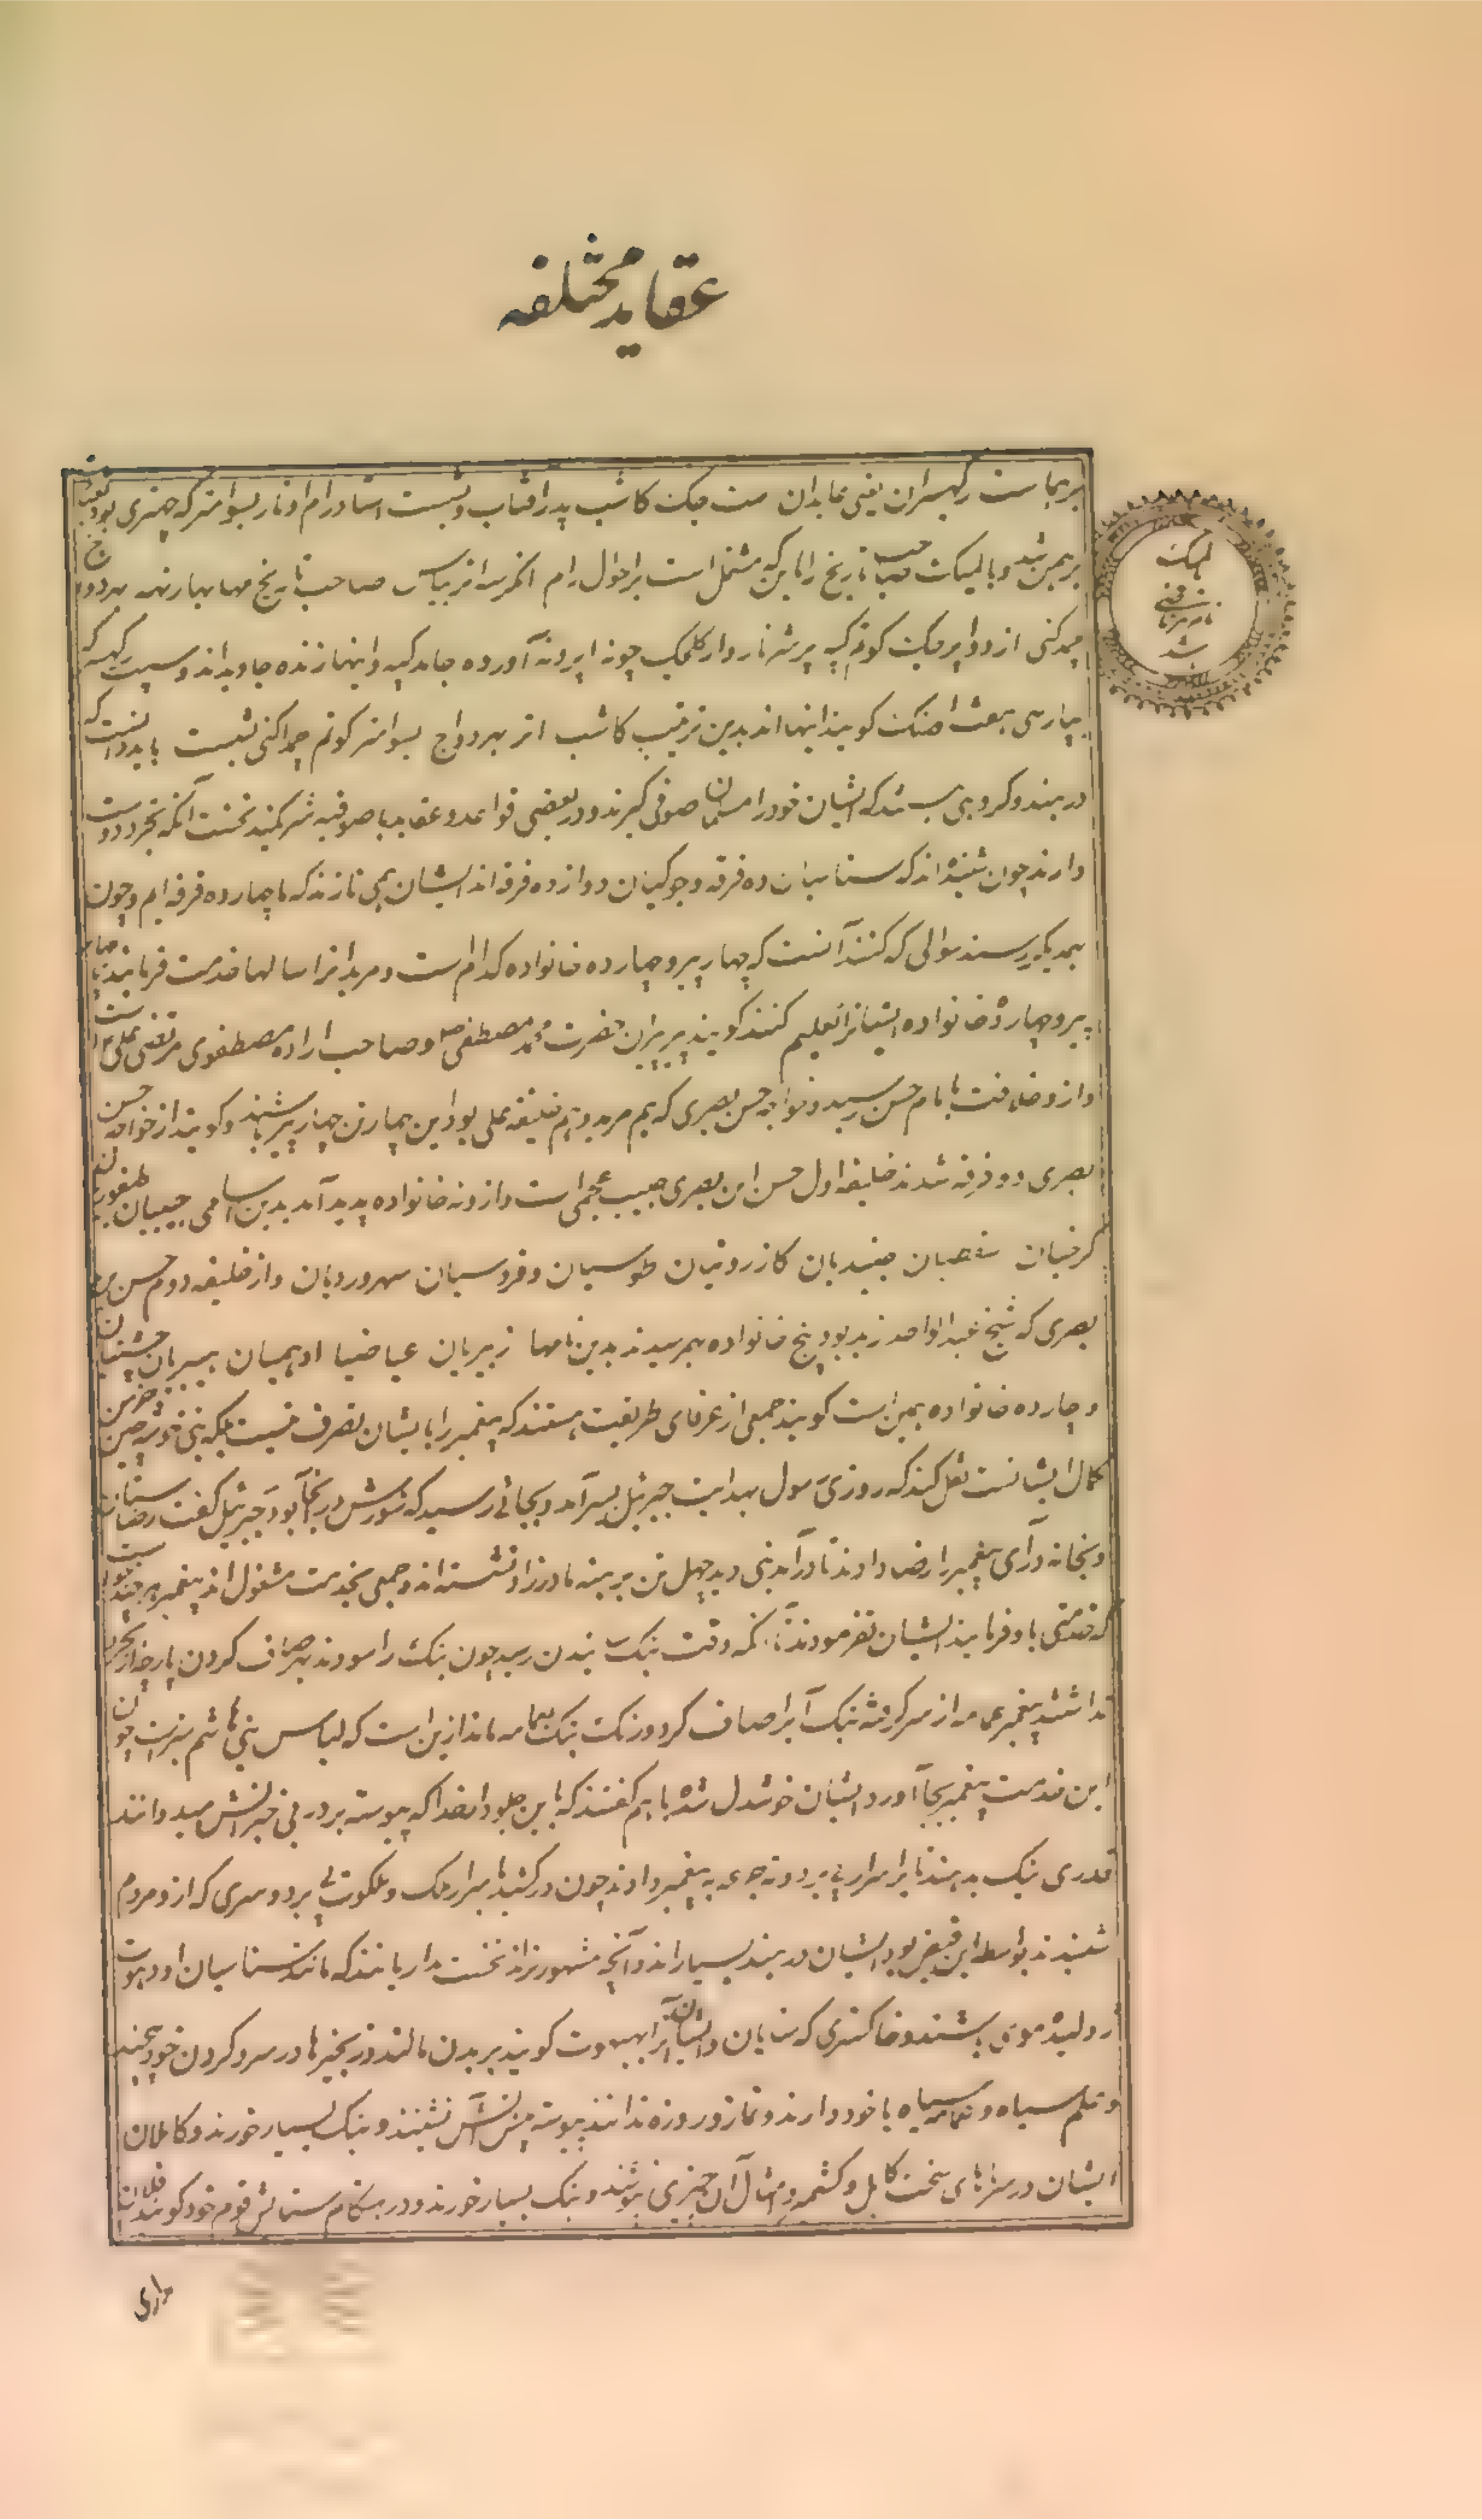 عقاید مختلفه
برهماست رکهیسران یعنی عابدان ست جک کاشب پدر آفتاب و بشست استاد رام اوتار بسوامتر که چتری بود بعبادت
برهمن شد و بالمیک صاحب تاریخ راماین که مشتمل است بر احوال رام انکرسه اتر بیاس صاحب تاریخ مهابهارتهه بهردواج
جمدکنی از دواپر جک کوتم
بپارسی هفت اورنک کویند اینها اند بدین ترتیب کاشب اتر بهردواج بسوامتر کوتم جمداکنی بشست باید دانست که
در هند کروهی باشند که ایشان خود را مسلمان صوفی کیرند و در بعضی قواعد و عقاید با صوفیه شرکت کنند نخست آنکه تجرد دوست
دارند چون شنیده اند که سناسیان ده فرقه و جوکیان دوازده فرقه اند ایشان می نازند که ما چهارده فرقه ایم و چون
بهمدیکر رسند سوالی که کنند آنست که چهار پیر و چهارده خانواده کدام است و مریدانرا سالها خدمت فرمایند تا چهار
پیر و چهارده خانواده ایشانرا تعلیم کنند کویند پیر پیران حضرت محمد مصطفی و صاحب اراده مصطفوی مرتضی علی است
و ازو خلافت بامام حسن رسید و خواجه حسن بصری که هم مرید و هم خلیفه علی بود این چهار تن چهار پیر باشند و کویند از خواجه حسن
بصری دو فرقه شدند خلیفه اول حسن این بصری حبیب عجمی است و ازو نه خانواده پدید آمد بدین اسامی حبیبیان طیفوریان
کرخیان سقطیان جنیدیان کازرونیان طوسیان و فردوسیان سهروردیان و از خلیفه دوم حسن
بصری که شیخ عبدالواحد زید بود پنج خانواده بهم رسیدند بدین نامها زیدیان عیاضیا ادهمیان هبیریان چشتیان
و چارده خانواده همین است کویند جمعی از عرفای طریقت هستند که پیغمبر را بایشان تصرف نیست بلکه نبی خوشه چین خرمن
کمال ایشانست نقل کنند که روزی رسول بهدایت جبرئیل بسیر آمد و بجائی رسید که شورش در آنجا بود جبرئیل کفت
و بخانه درآی پیغمبر را رضا دادند تا درآمد نبی دید چهل تن برهنه مادرزاد نشسته اند و جمعی بخدمت مشغول اند پیغمبر هر چند خواست
که خدمتی باو فرمایند ایشان نفرمودند تا آنکه وقت بنک زدن رسید چون بنک را سودند بهر صاف کردن پارچه
نداشتند پیغمبر عمامه از سر کرفته بنک آبرا صاف کرد و رنک بنک بعمامه ماند ازین است که لباس بنی هاشم سبز است چون
این خدمت پیغمبر بجا آورد ایشان خوشدل شده باهم کفتند که باین جلودار خدا که پیوسته بر در بی خبرانش میدوانند
قدری بنک بدهند تا بر اسرار پی برد و ته جرعه به پیغمبر دادند چون درکشید باسرار ملک و ملکوت پی برد و سری که ازو مردم
شنیدند بواسطه این فیض بود ایشان در هند بسیار اند و آنچه مشهورتر اند نخست مداریانند که مانند سناسیان اودهوت
ژولیده موی باشند و خاکستری که سنایان و ایشان آنرا بهبوت کویند بر بدن مالند و زنجیرها در سر و کردن خود پیچند
و علم سیاه و عمامه سیاه با خود دارند و نماز و روزه ندانند پیوسته پیش آتش نشینند و بنک بسیار خورند و کاملان
ایشان در سرماهای سخت کابل و کشمیر و امثال آن چیزی نپوشند و بنک بسیار خورند و در هنکام ستایش قوم خود کویند فلان
مداری